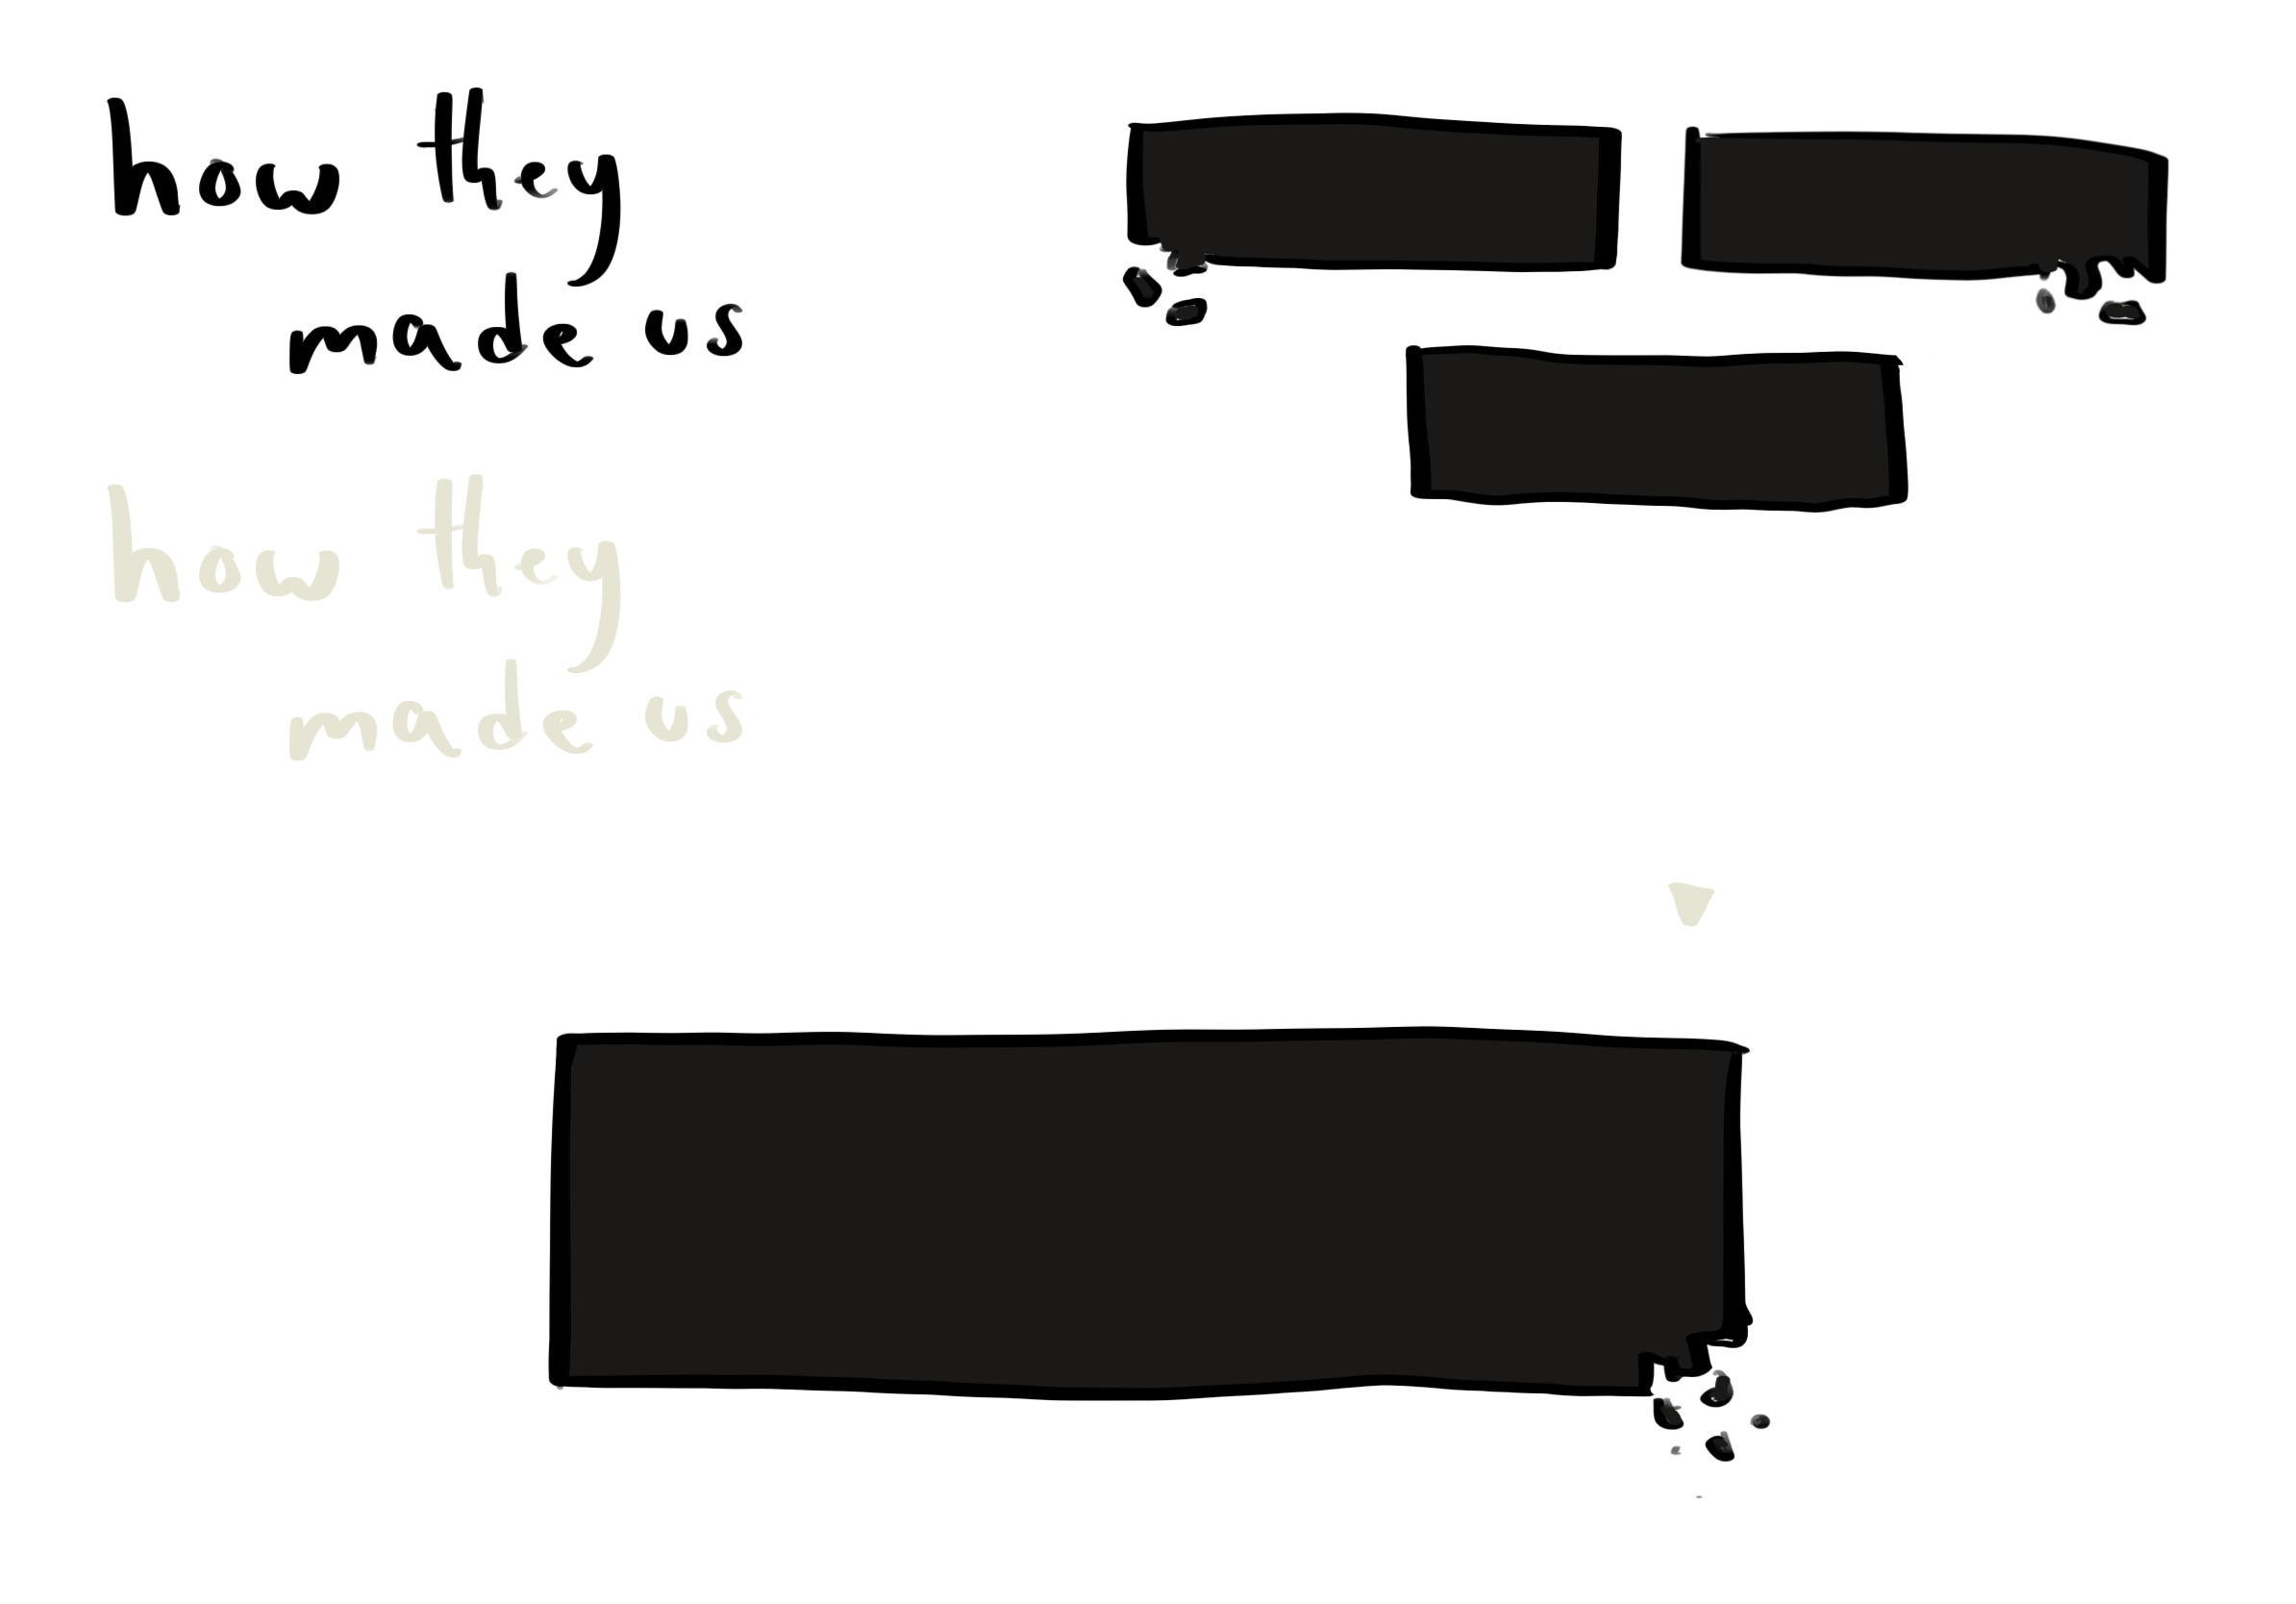 how they
made us
how they
made us